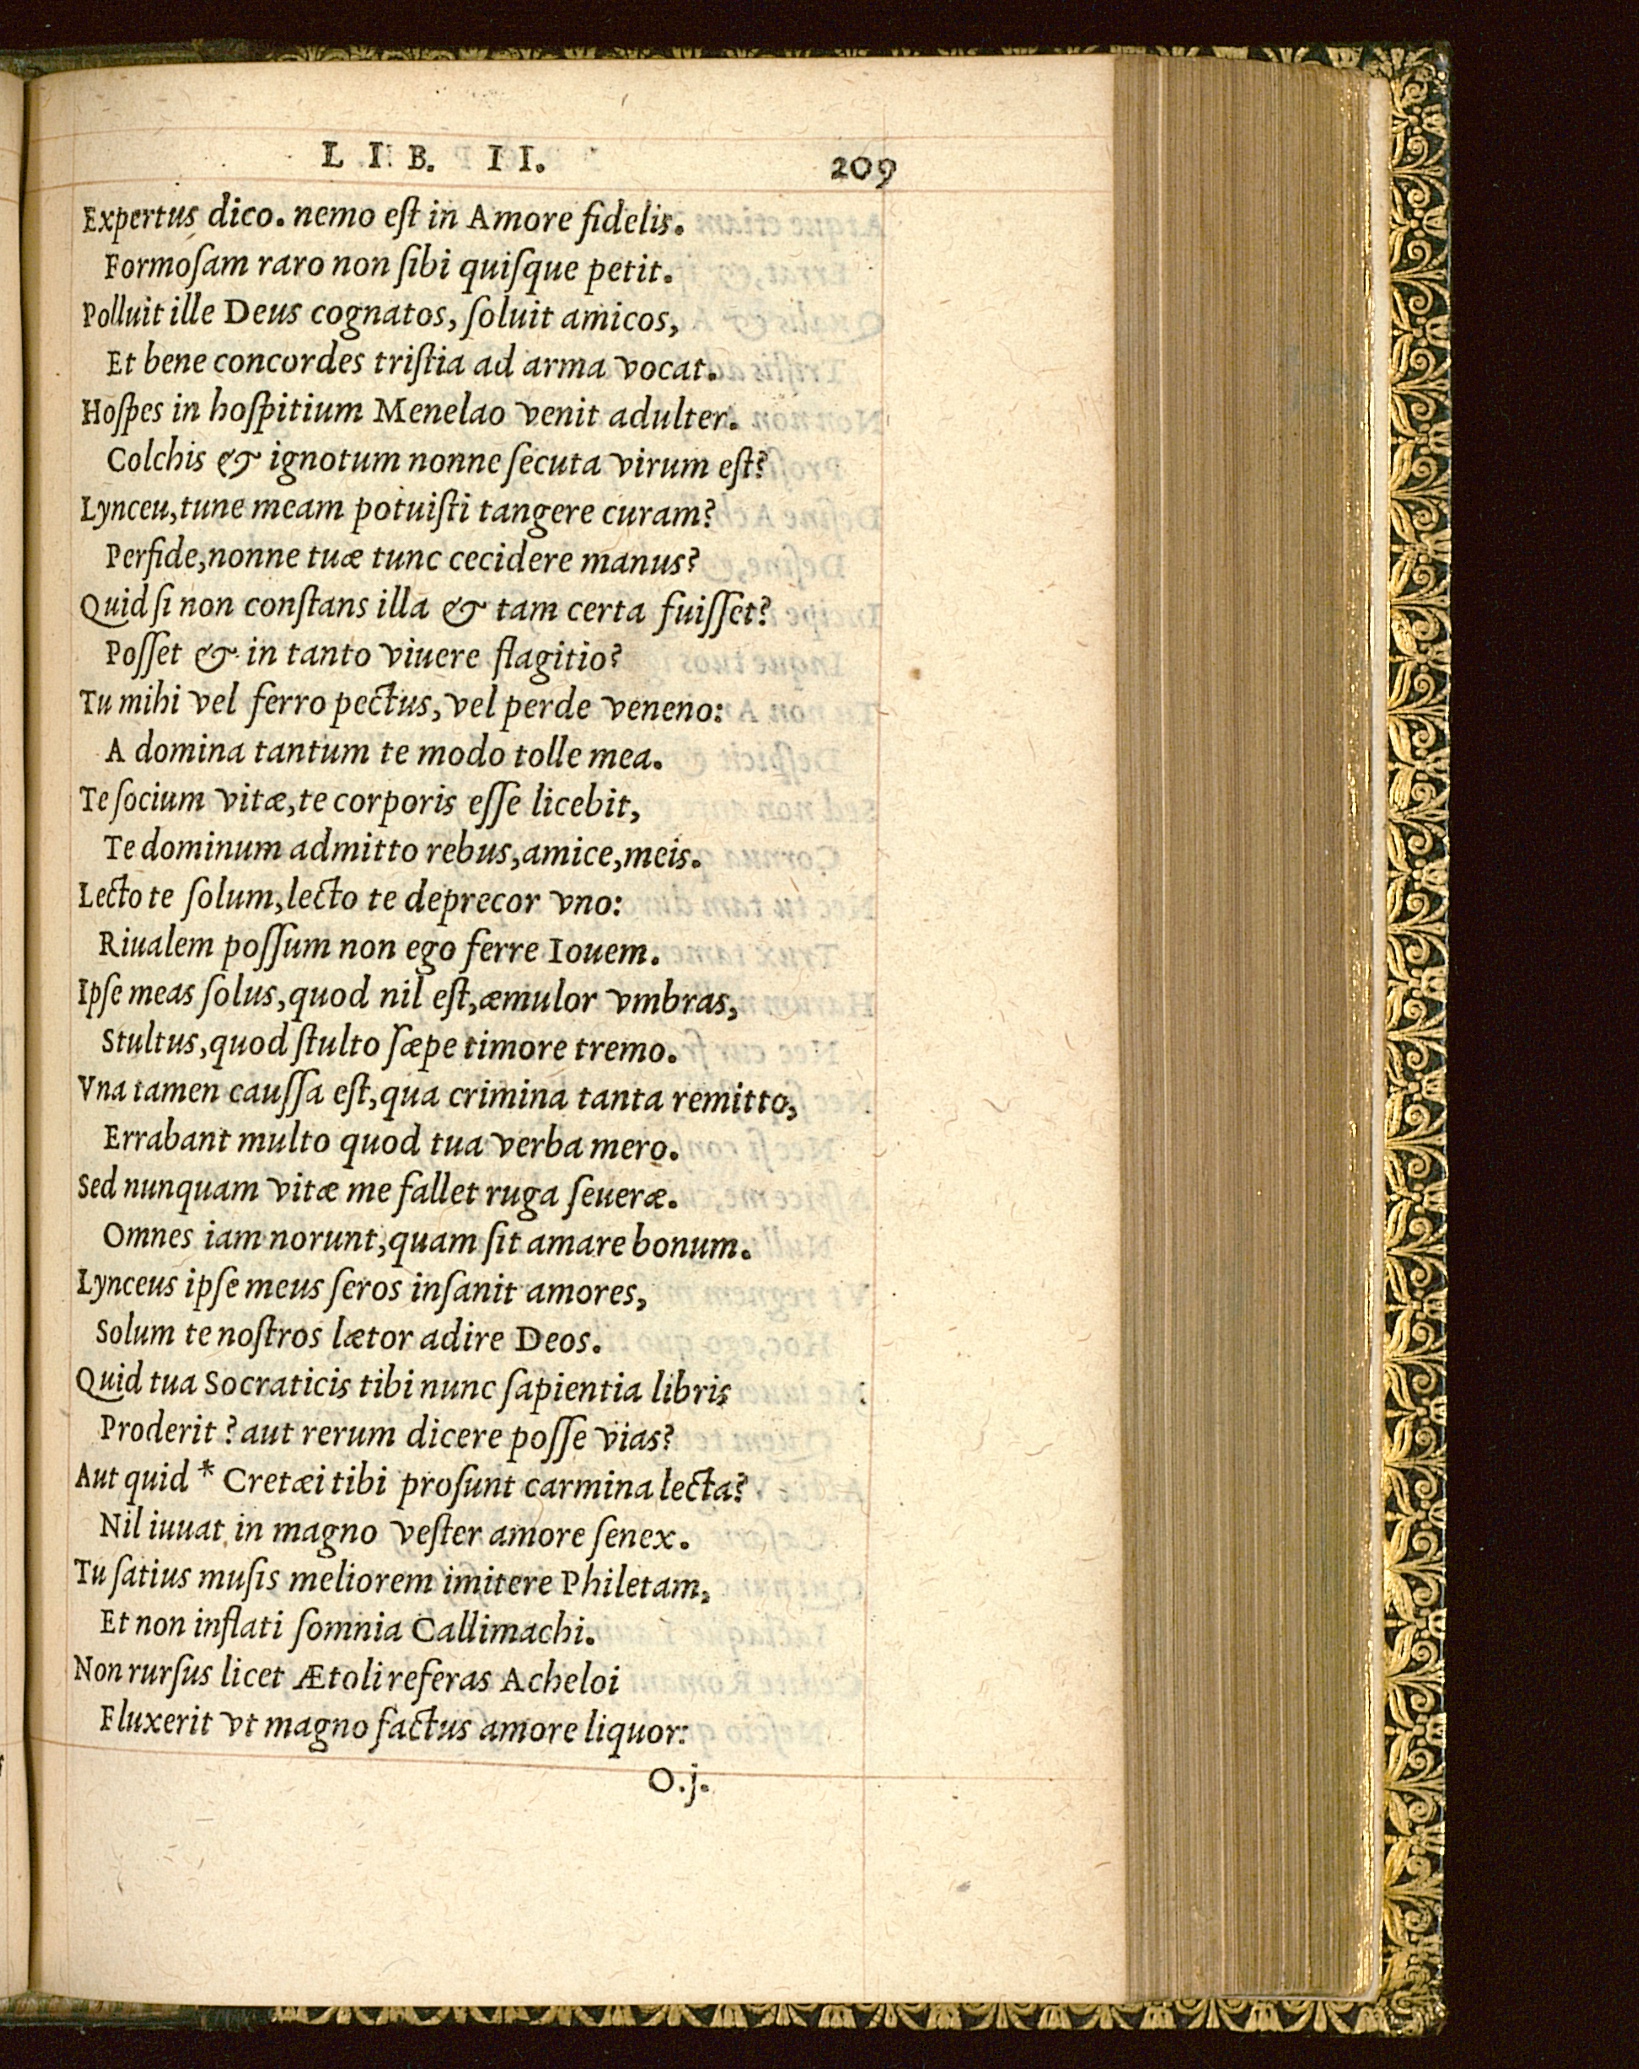 LIB. II. 209
Expertus dico. nemo eſt in Amore fidelis.
Formoſam raro non ſibi quiſque petit.
Polluit ille Deus cognatos, ſoluit amicos,
Et bene concordes triſtia ad arma vocat.
Hoſpes in hoſpitium Menelao venit adulter.
Colchis & ignotum nonne ſecuta virum eſt?
Lynceu, tune meam potuiſti tangere curam?
Perfide, nonne tuæ tunc cecidere manus?
Quid ſi non conſtans illa & tam certa fuiſſet?
Poſſet & in tanto viuere flagitio?
Tu mihi vel ferro pectus, vel perde veneno:
A domina tantum te modo tolle mea.
Te ſocium vitæ, te corporis eſſe licebit,
Te dominum admitto rebus, amice, meis.
Lecto te ſolum, lecto te deprecor vno:
Riualem poſſum non ego ferre Iouem.
Ipſe meas ſolus, quod nil eſt, æmulor vmbras,
Stultus, quod ſtulto ſæpe timore tremo.
Vna tamen cauſſa eſt, qua crimina tanta remitto,
Errabant multo quod tua verba mero.
Sed nunquam vitæ me fallet ruga ſeueræ.
Omnes iam norunt, quam ſit amare bonum.
Lynceus ipſe meus ſeros inſanit amores,
Solum te noſtros lætor adire Deos.
Quid tua Socraticis tibi nunc ſapientia libris
Proderit? aut rerum dicere poſſe vias?
Aut quid * Cretæi tibi proſunt carmina lecta?
Nil iuuat in magno veſter amore ſenex.
Tu ſatius muſis meliorem imitere Philetam,
Et non inflati ſomnia Callimachi.
Non rurſus licet Ætoli referas Acheloi
Fluxerit vt magno factus amore liquor:
O.j.